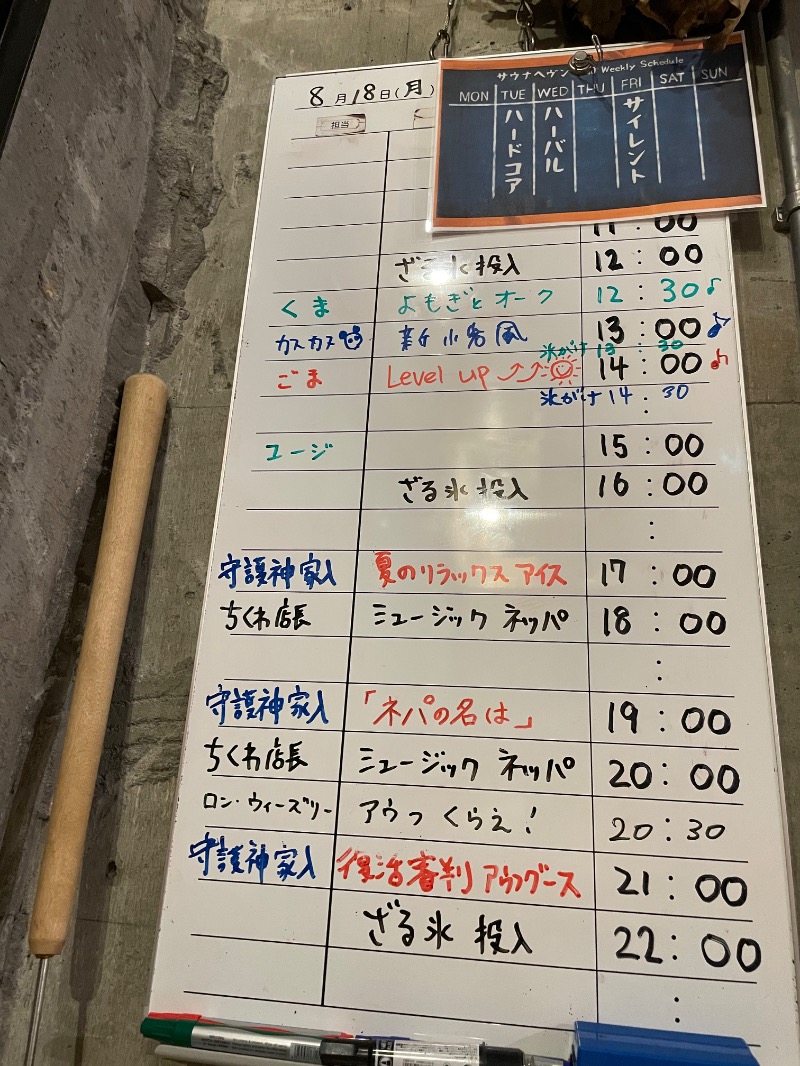 8月18日(月)
サウナヘヴン Weekly Schedule
MON TUE WED THU FRI SAT SUN
ハードコア
ハーバル
サイレント
担当
11:00
ざる氷投入 12:00
くま よもぎとオーク 12:30♪
カスカス 13:00♪
氷がけ 13:30
ごま Level up 14:00♪
氷がけ 14:30
ユージ 15:00
ざる氷投入 16:00
:
守護神家入 夏のリラックスアイス 17:00
ちくわ店長 ミュージック ネッパ 18:00
:
守護神家入 「ネパの名は」 19:00
ちくわ店長 ミュージック ネッパ 20:00
ロン・ウィーズリー アウっ くらえ! 20:30
守護神家入 復活審判 アウフグース 21:00
ざる氷 投入 22:00
: